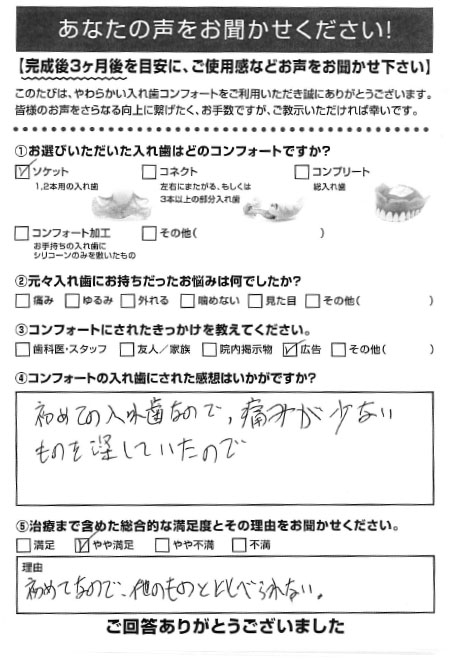 あなたの声をお聞かせください!
【完成後3ヶ月後を目安に、ご使用感などお声をお聞かせ下さい】
このたびは、やわらかい入れ歯コンフォートをご利用いただき誠にありがとうございます。
皆様のお声をさらなる向上に繋げたく、お手数ですが、ご教示いただければ幸いです。
①お選びいただいた入れ歯はどのコンフォートですか?
ソケット コネクト コンプリート
1,2本用の入れ歯 左右にまたがる、もしくは 総入れ歯
3本以上の部分入れ歯
コンフォート加工 その他( )
お手持ちの入れ歯に
シリコーンのみを敷いたもの
②元々入れ歯にお持ちだったお悩みは何でしたか?
痛み ゆるみ 外れる 噛めない 見た目 その他( )
③コンフォートにされたきっかけを教えてください。
歯科医・スタッフ 友人/家族 院内掲示物 広告 その他( )
④コンフォートの入れ歯にされた感想はいかがですか?
初めての入れ歯なので、痛みが少ない
ものを探していたので
⑤治療まで含めた総合的な満足度とその理由をお聞かせください。
満足 やや満足 やや不満 不満
理由
初めてなので、他のものとくらべられない。
ご回答ありがとうございました